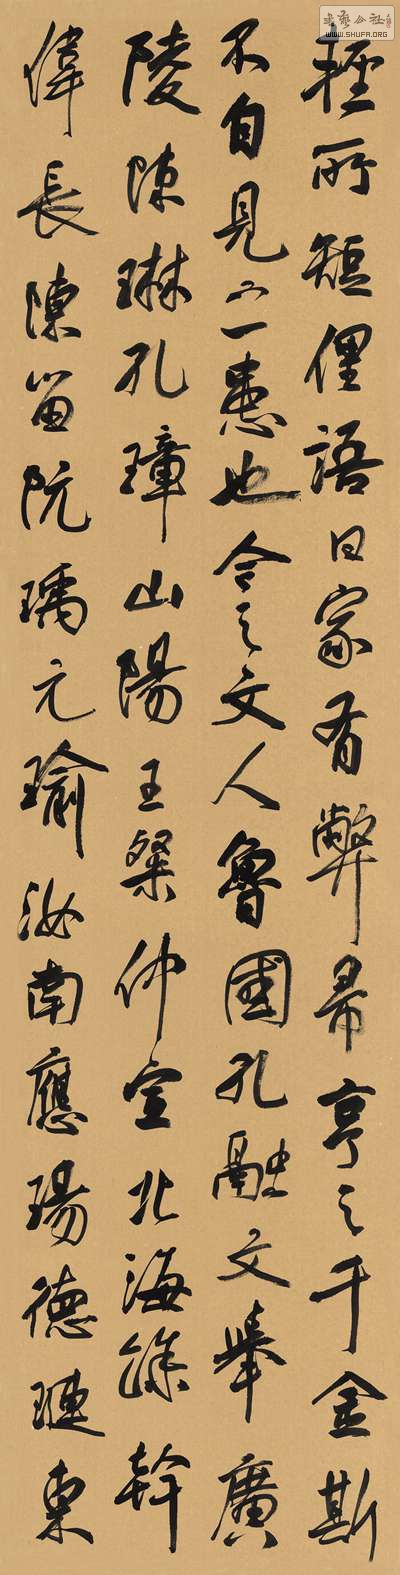 輕所短俚語曰家有弊帚享之千金斯
不自見之患也今之文人魯國孔融文舉廣
陵陳琳孔璋山陽王粲仲宣北海徐幹
偉長陳留阮瑀元瑜汝南應瑒德璉東
書藝公社
WWW.SHUFA.ORG